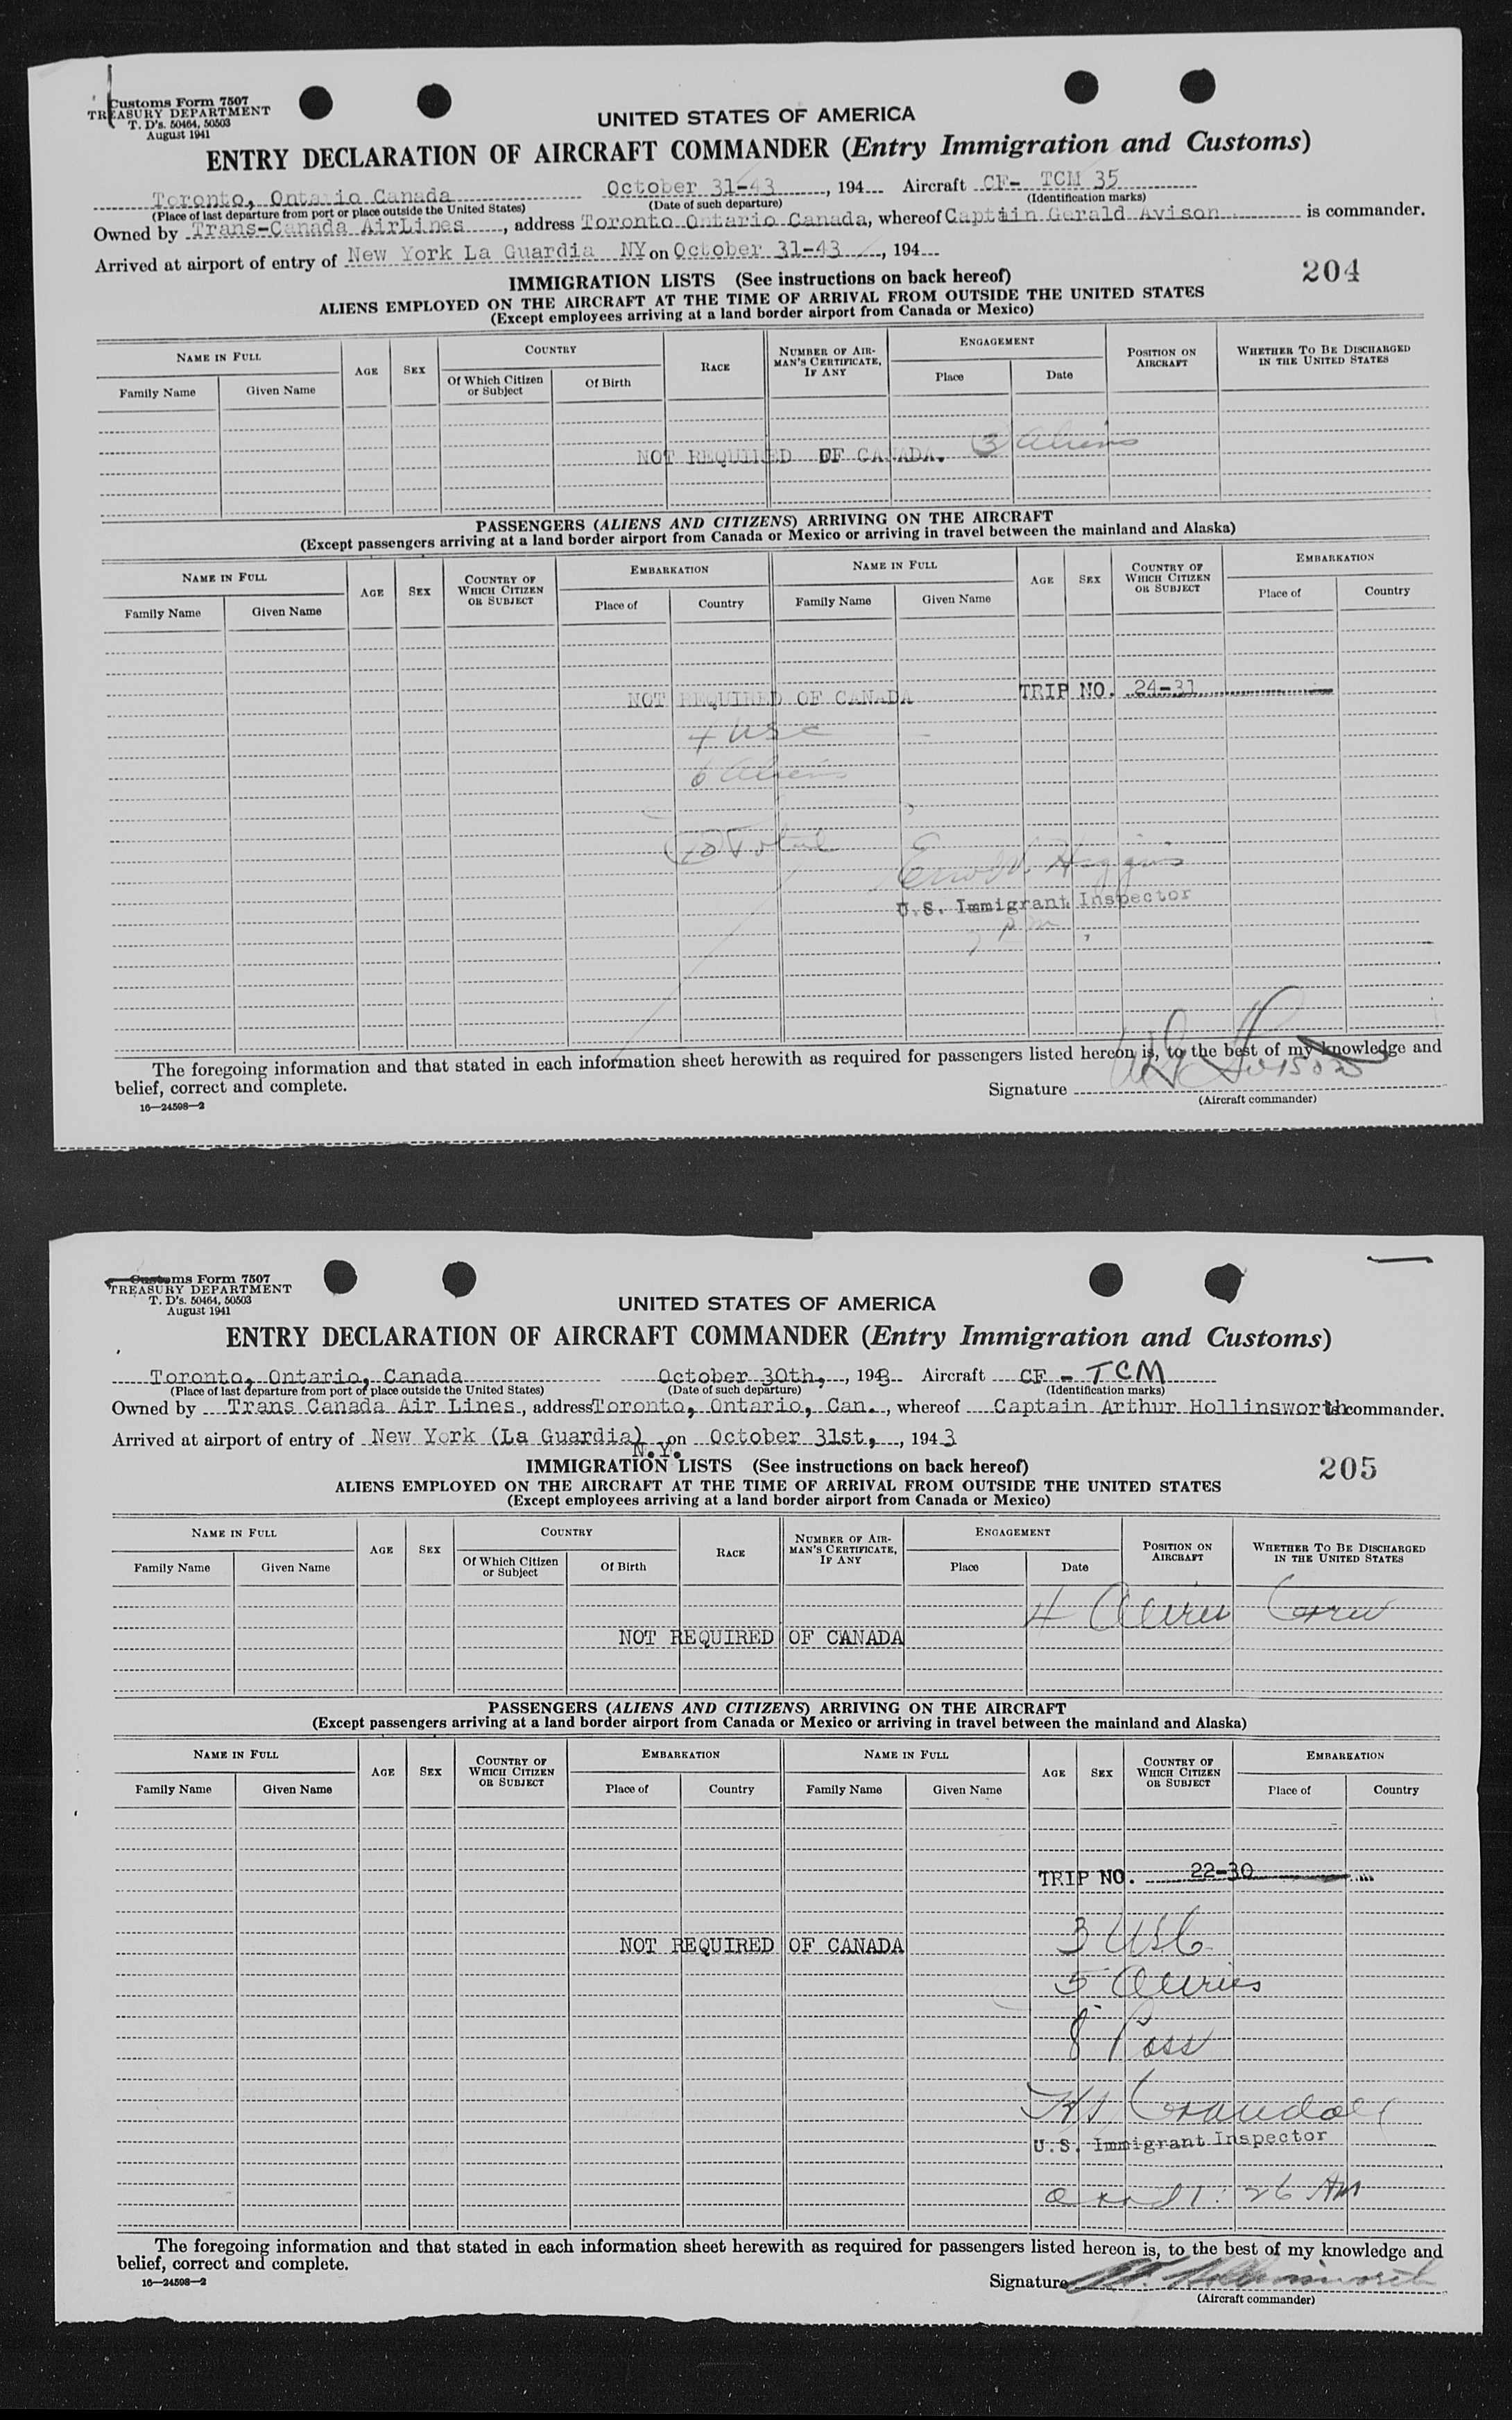 Customs Form 7507
TREASURY DEPARTMENT
T. D's. 50464, 50503
August 1941
UNITED STATES OF AMERICA
ENTRY DECLARATION OF AIRCRAFT COMMANDER (Entry Immigration and Customs)
Toronto, Ontario Canada October 31-43, 194 Aircraft CF- TCM 35
(Place of last departure from port or place outside the United States) (Date of such departure) (Identification marks)
Owned by Trans-Canada AirLines, address Toronto Ontario Canada, whereof Captain Gerald Avison is commander.
Arrived at airport of entry of New York La Guardia NY on October 31-43, 194
204
IMMIGRATION LISTS (See instructions on back hereof)
ALIENS EMPLOYED ON THE AIRCRAFT AT THE TIME OF ARRIVAL FROM OUTSIDE THE UNITED STATES
(Except employees arriving at a land border airport from Canada or Mexico)
NAME IN FULL AGE SEX COUNTRY RACE NUMBER OF AIRMAN'S CERTIFICATE, IF ANY ENGAGEMENT POSITION ON AIRCRAFT WHETHER TO BE DISCHARGED IN THE UNITED STATES
Family Name Given Name Of Which Citizen or Subject Of Birth Place Date
3 Aliens
NOT REQUIRED OF CANADA.
PASSENGERS (ALIENS AND CITIZENS) ARRIVING ON THE AIRCRAFT
(Except passengers arriving at a land border airport from Canada or Mexico or arriving in travel between the mainland and Alaska)
NAME IN FULL AGE SEX COUNTRY OF WHICH CITIZEN OR SUBJECT EMBARKATION NAME IN FULL AGE SEX COUNTRY OF WHICH CITIZEN OR SUBJECT EMBARKATION
Family Name Given Name Place of Country Family Name Given Name Place of Country
NOT REQUIRED OF CANADA TRIP NO. 24-31
4 USC
6 Aliens
10 Total
Higgins
U.S. Immigrant Inspector
7 PM
The foregoing information and that stated in each information sheet herewith as required for passengers listed hereon is, to the best of my knowledge and
belief, correct and complete.
Signature Avison
16—24598—2 (Aircraft commander)
Customs Form 7507
TREASURY DEPARTMENT
T. D's. 50464, 50503
August 1941
UNITED STATES OF AMERICA
ENTRY DECLARATION OF AIRCRAFT COMMANDER (Entry Immigration and Customs)
Toronto, Ontario, Canada October 30th, 1943 Aircraft CF - TCM
(Place of last departure from port or place outside the United States) (Date of such departure) (Identification marks)
Owned by Trans Canada Air Lines, address Toronto, Ontario, Can., whereof Captain Arthur Hollinsworth is commander.
Arrived at airport of entry of New York (La Guardia) N.Y. on October 31st, 1943
205
IMMIGRATION LISTS (See instructions on back hereof)
ALIENS EMPLOYED ON THE AIRCRAFT AT THE TIME OF ARRIVAL FROM OUTSIDE THE UNITED STATES
(Except employees arriving at a land border airport from Canada or Mexico)
NAME IN FULL AGE SEX COUNTRY RACE NUMBER OF AIRMAN'S CERTIFICATE, IF ANY ENGAGEMENT POSITION ON AIRCRAFT WHETHER TO BE DISCHARGED IN THE UNITED STATES
Family Name Given Name Of Which Citizen or Subject Of Birth Place Date
4 Aliens Crew
NOT REQUIRED OF CANADA
PASSENGERS (ALIENS AND CITIZENS) ARRIVING ON THE AIRCRAFT
(Except passengers arriving at a land border airport from Canada or Mexico or arriving in travel between the mainland and Alaska)
NAME IN FULL AGE SEX COUNTRY OF WHICH CITIZEN OR SUBJECT EMBARKATION NAME IN FULL AGE SEX COUNTRY OF WHICH CITIZEN OR SUBJECT EMBARKATION
Family Name Given Name Place of Country Family Name Given Name Place of Country
TRIP NO. 22-30
3 USC
NOT REQUIRED OF CANADA
5 Aliens
8 Pass
Crandall
U.S. Immigrant Inspector
1:26 AM
The foregoing information and that stated in each information sheet herewith as required for passengers listed hereon is, to the best of my knowledge and
belief, correct and complete.
Signature Hollinsworth
16—24598—2 (Aircraft commander)